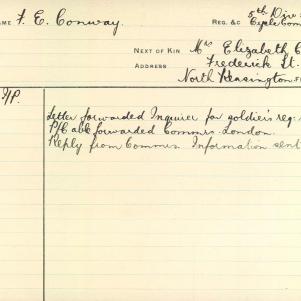 NAME F. E. Conway. REG. &C 5th Div
Cycle Com
NEXT OF KIN Mrs Elizabeth C
ADDRESS Frederick St.
North Kensington
Letter forwarded Inquirer for soldier's reg:
P/C ack forwarded Commrs. London.
Reply from Commrs Information sent